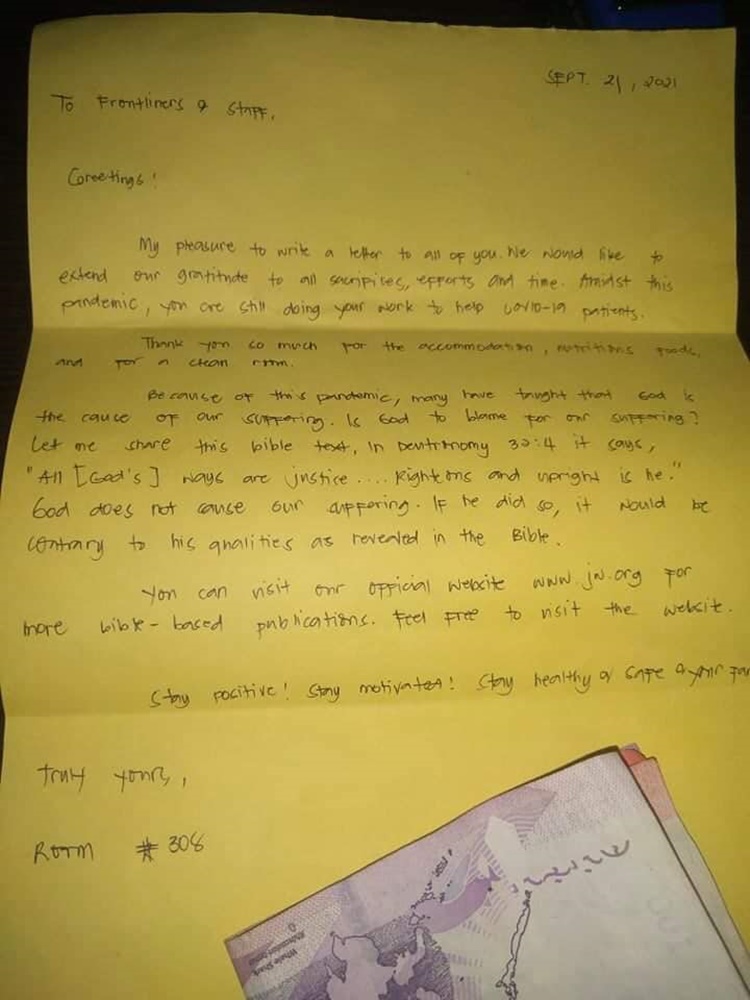 SEPT. 21, 2021
To Frontliners & Staff,
Greetings!
My pleasure to write a letter to all of you. We would like to
extend our gratitude to all sacrifices, efforts and time. Amidst this
pandemic, you are still doing your work to help COVID-19 patients.
Thank you so much for the accommodation, nutritious foods,
and for a clean room.
Because of this pandemic, many have taught that God is
the cause of our suffering. Is God to blame for our suffering?
Let me share this bible text, in Deutronomy 32:4 it says,
"All [God's] ways are justice.... Righteous and upright is he."
God does not cause our suffering. If he did so, it would be
contrary to his qualities as revealed in the Bible.
You can visit our official website www.jw.org for
more bible-based publications. Feel free to visit the website.
Stay positive! Stay motivated! Stay healthy & safe & your fam
Truly yours,
Room # 308
Whale Shark